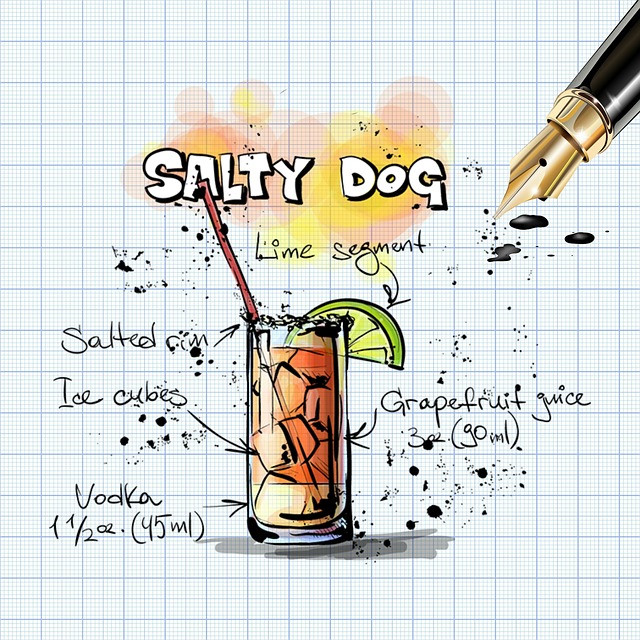 SALTY DOG
Lime segment
Salted rim
Ice cubes
Grapefruit juice
3oz.(90ml)
Vodka
1 1/2oz.(45ml)